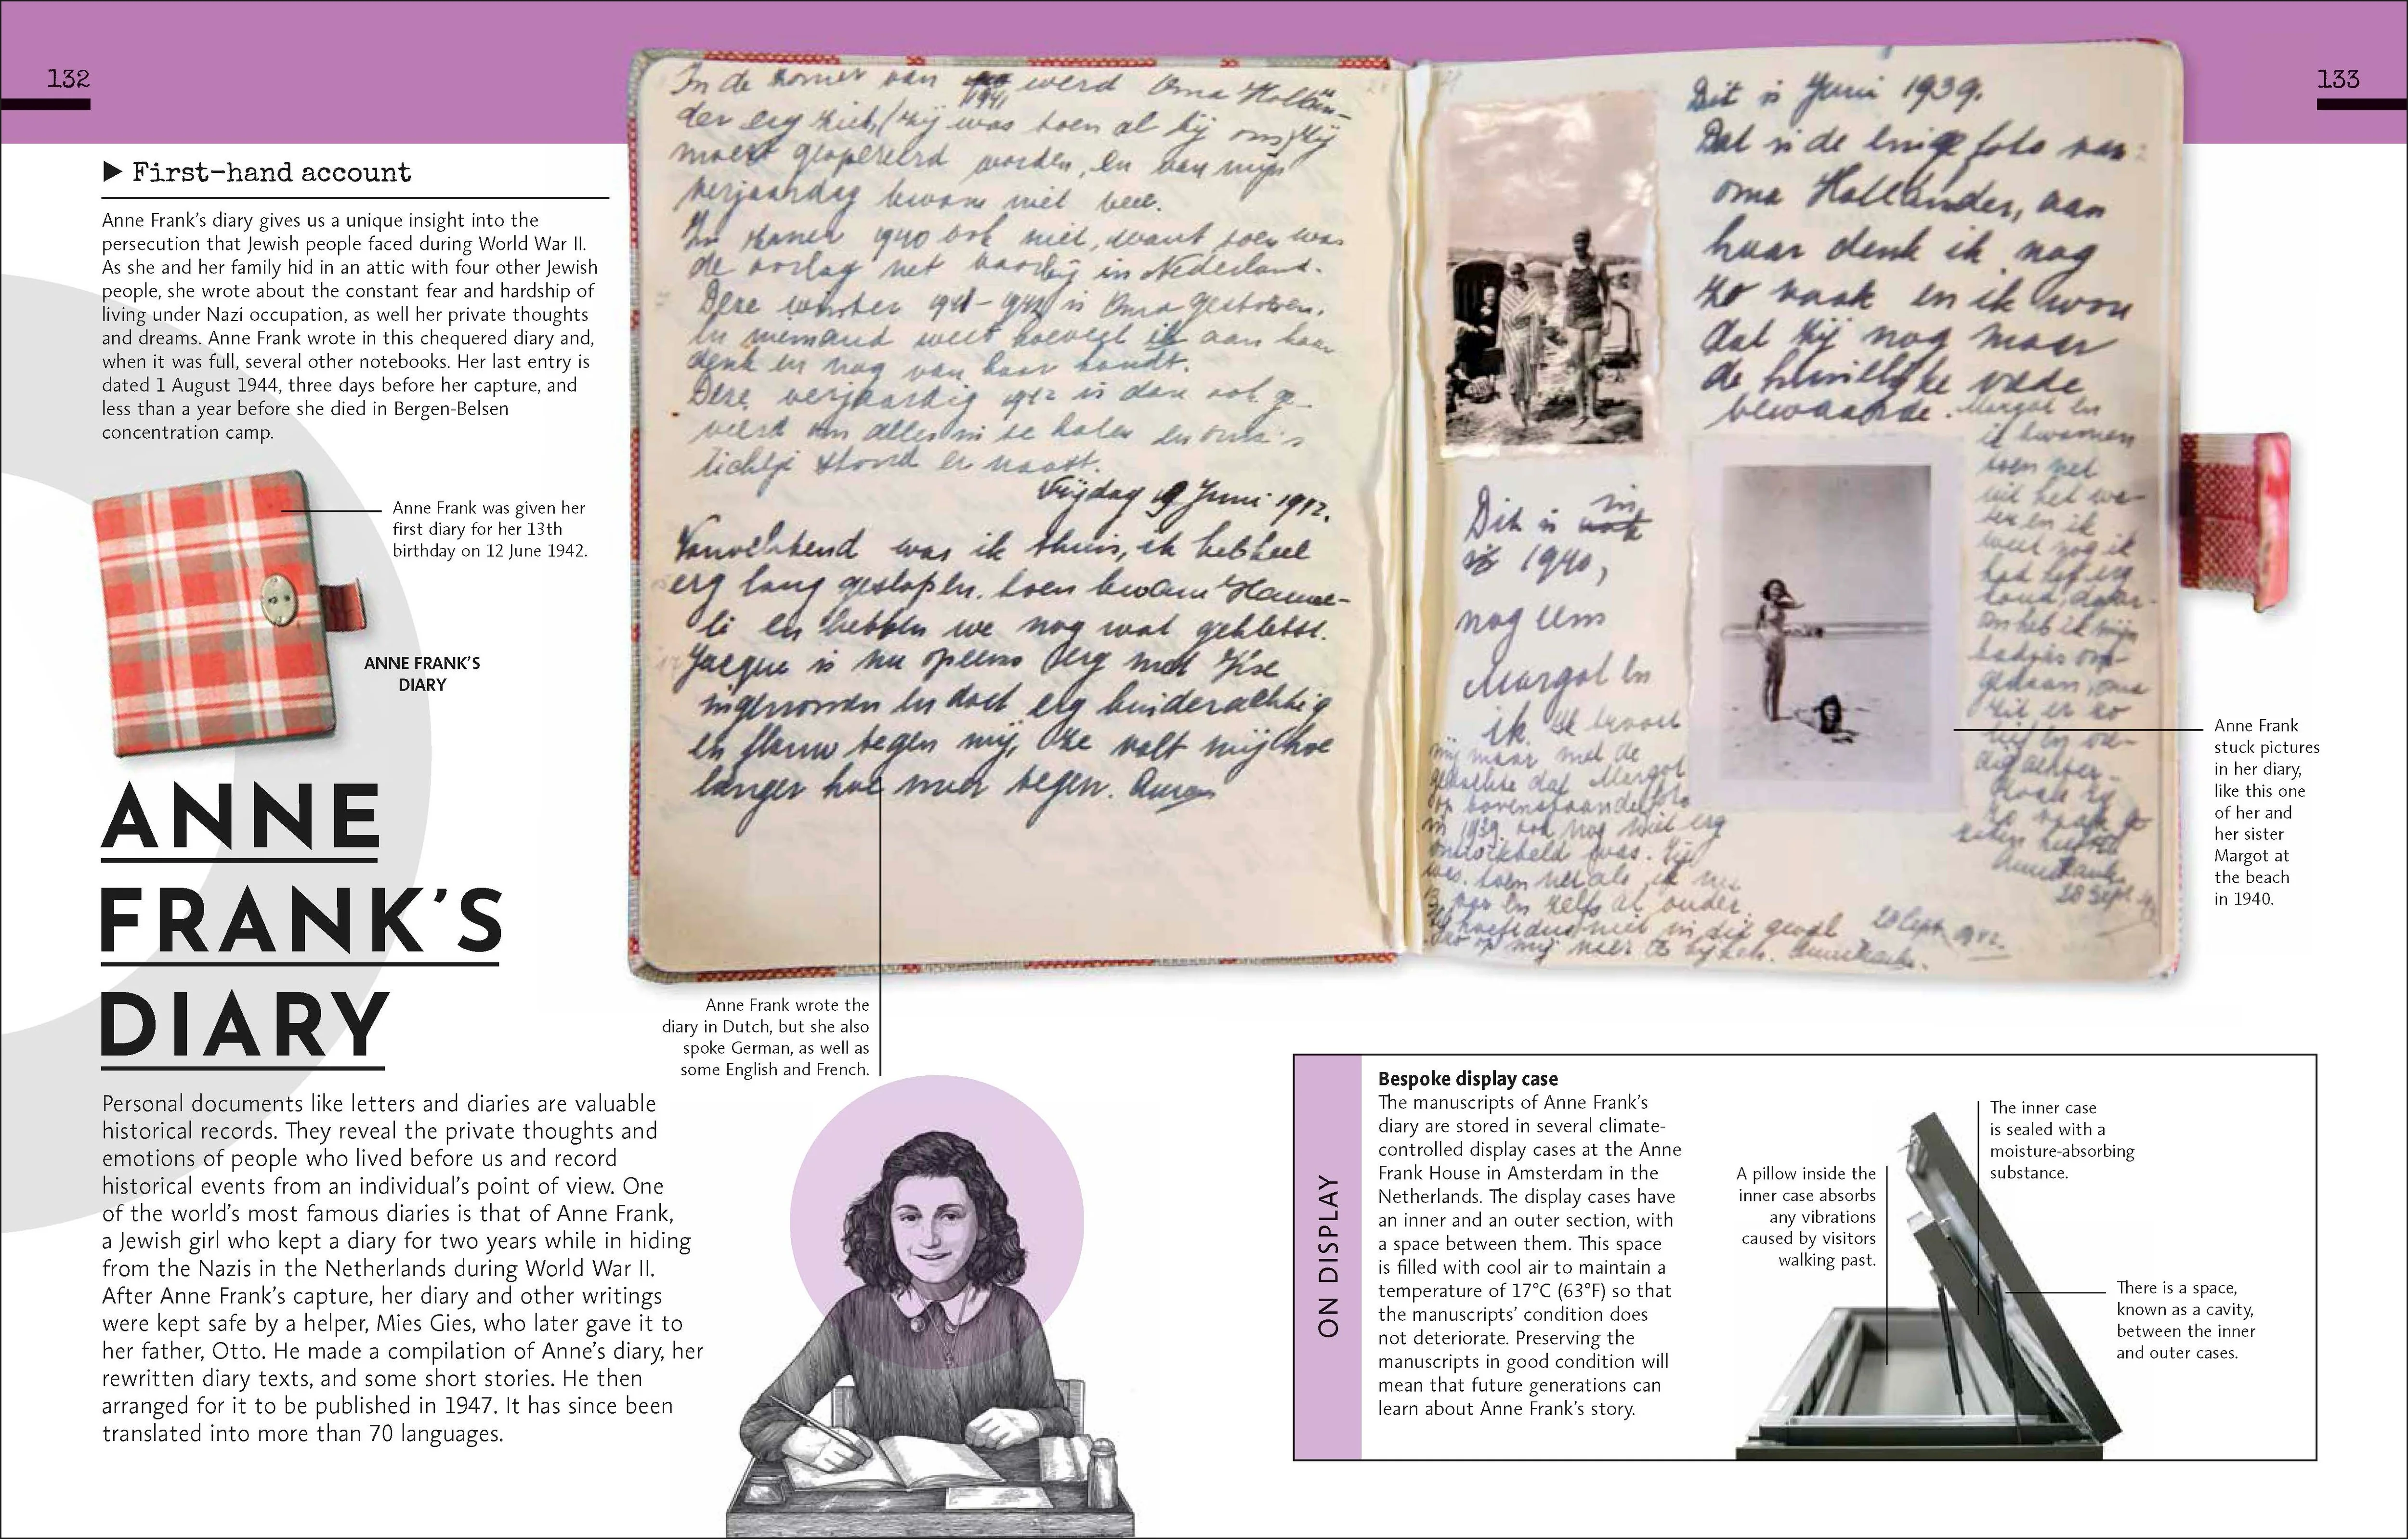 132
133
▶ First-hand account
Anne Frank's diary gives us a unique insight into the
persecution that Jewish people faced during World War II.
As she and her family hid in an attic with four other Jewish
people, she wrote about the constant fear and hardship of
living under Nazi occupation, as well her private thoughts
and dreams. Anne Frank wrote in this chequered diary and,
when it was full, several other notebooks. Her last entry is
dated 1 August 1944, three days before her capture, and
less than a year before she died in Bergen-Belsen
concentration camp.
Anne Frank was given her
first diary for her 13th
birthday on 12 June 1942.
ANNE FRANK'S
DIARY
ANNE
FRANK'S
DIARY
Personal documents like letters and diaries are valuable
historical records. They reveal the private thoughts and
emotions of people who lived before us and record
historical events from an individual's point of view. One
of the world's most famous diaries is that of Anne Frank,
a Jewish girl who kept a diary for two years while in hiding
from the Nazis in the Netherlands during World War II.
After Anne Frank's capture, her diary and other writings
were kept safe by a helper, Mies Gies, who later gave it to
her father, Otto. He made a compilation of Anne's diary, her
rewritten diary texts, and some short stories. He then
arranged for it to be published in 1947. It has since been
translated into more than 70 languages.
In de zomer van 1941 werd Oma Hollän-
der erg ziek, (zij was toen al bij ons) zij
moest geopereerd worden, en van mijn
verjaardag kwam niet veel.
In zomer 1940 ook niet, want toen was
de oorlog net voorbij in Nederland.
Deze winter 1941-1942 is Oma gestorven.
En niemand weet hoeveel ik aan haar
denk en nog van haar houdt.
Deze verjaardag 1942 is dan ook ge-
vierd om alles in te halen en oma's
lichtje stond er naast.
Vrijdag 19 Juni 1942.
Vanochtend was ik thuis, ik heb heel
erg lang geslapen, toen kwam Hanne-
li en hebben we nog wat gekletst.
Jacque is nu opeens erg met Ilse
ingenomen en doet erg kinderachtig
en flauw tegen mij, ze valt mij hoe
langer hoe meer tegen.
Dit is Juni 1939.
Dat is de enige foto van
oma Holländer, aan
haar denk ik nog
zo vaak en ik wou
dat zij nog maar
de huiselijke vrede
bewaarde. Margot en
ik kwamen
toen net
uit het wa-
ter en ik
weet nog ik
had het erg
koud, daar-
om heb ik mijn
badjas om-
gedaan, oma
zit er zo
28 Sept.
Dit is in
1940,
nog eens
Margot en
ik. Ik troost
mij maar met de
gedachte dat Margot
op bovenstaande foto
in 1939 ook nog niet erg
ontwikkeld was. Zij
was toen net als ik nu
13 jaar en zelfs al ouder.
28 Sept. 1942.
Anne Frank wrote the
diary in Dutch, but she also
spoke German, as well as
some English and French.
Anne Frank
stuck pictures
in her diary,
like this one
of her and
her sister
Margot at
the beach
in 1940.
ON DISPLAY
Bespoke display case
The manuscripts of Anne Frank's
diary are stored in several climate-
controlled display cases at the Anne
Frank House in Amsterdam in the
Netherlands. The display cases have
an inner and an outer section, with
a space between them. This space
is filled with cool air to maintain a
temperature of 17°C (63°F) so that
the manuscripts' condition does
not deteriorate. Preserving the
manuscripts in good condition will
mean that future generations can
learn about Anne Frank's story.
A pillow inside the
inner case absorbs
any vibrations
caused by visitors
walking past.
The inner case
is sealed with a
moisture-absorbing
substance.
There is a space,
known as a cavity,
between the inner
and outer cases.